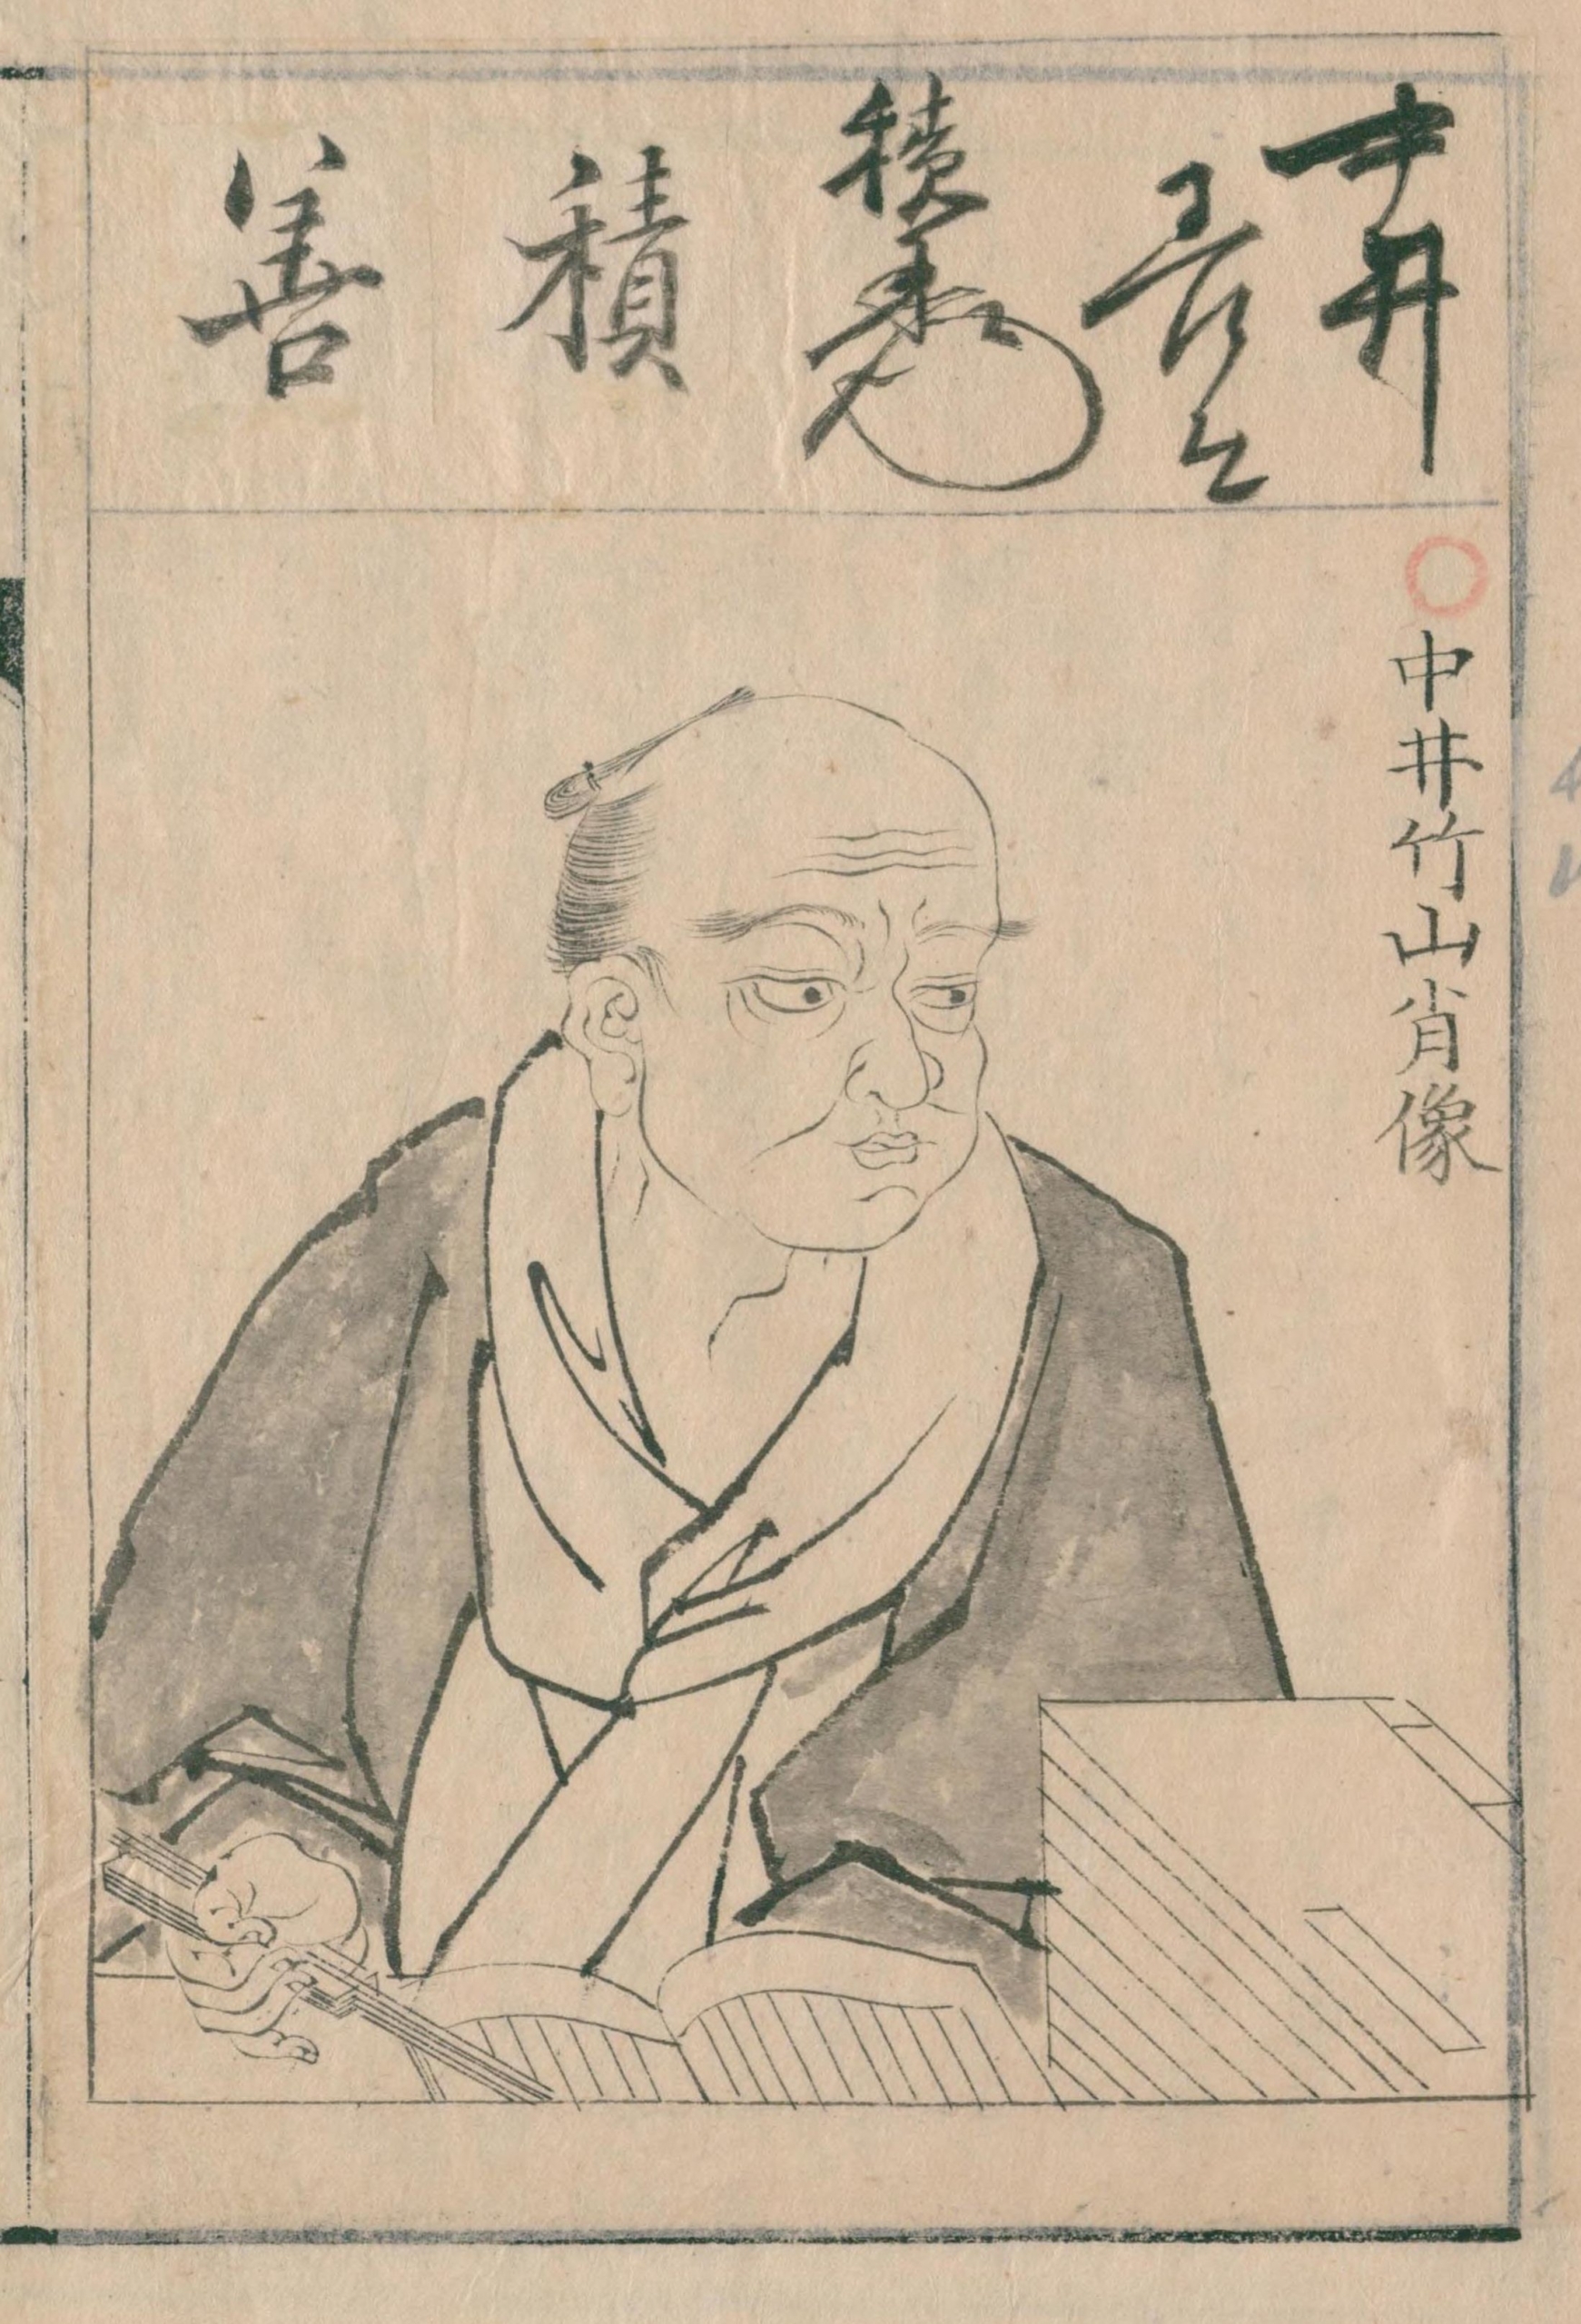 中井
積
積
善
中井竹山肖像